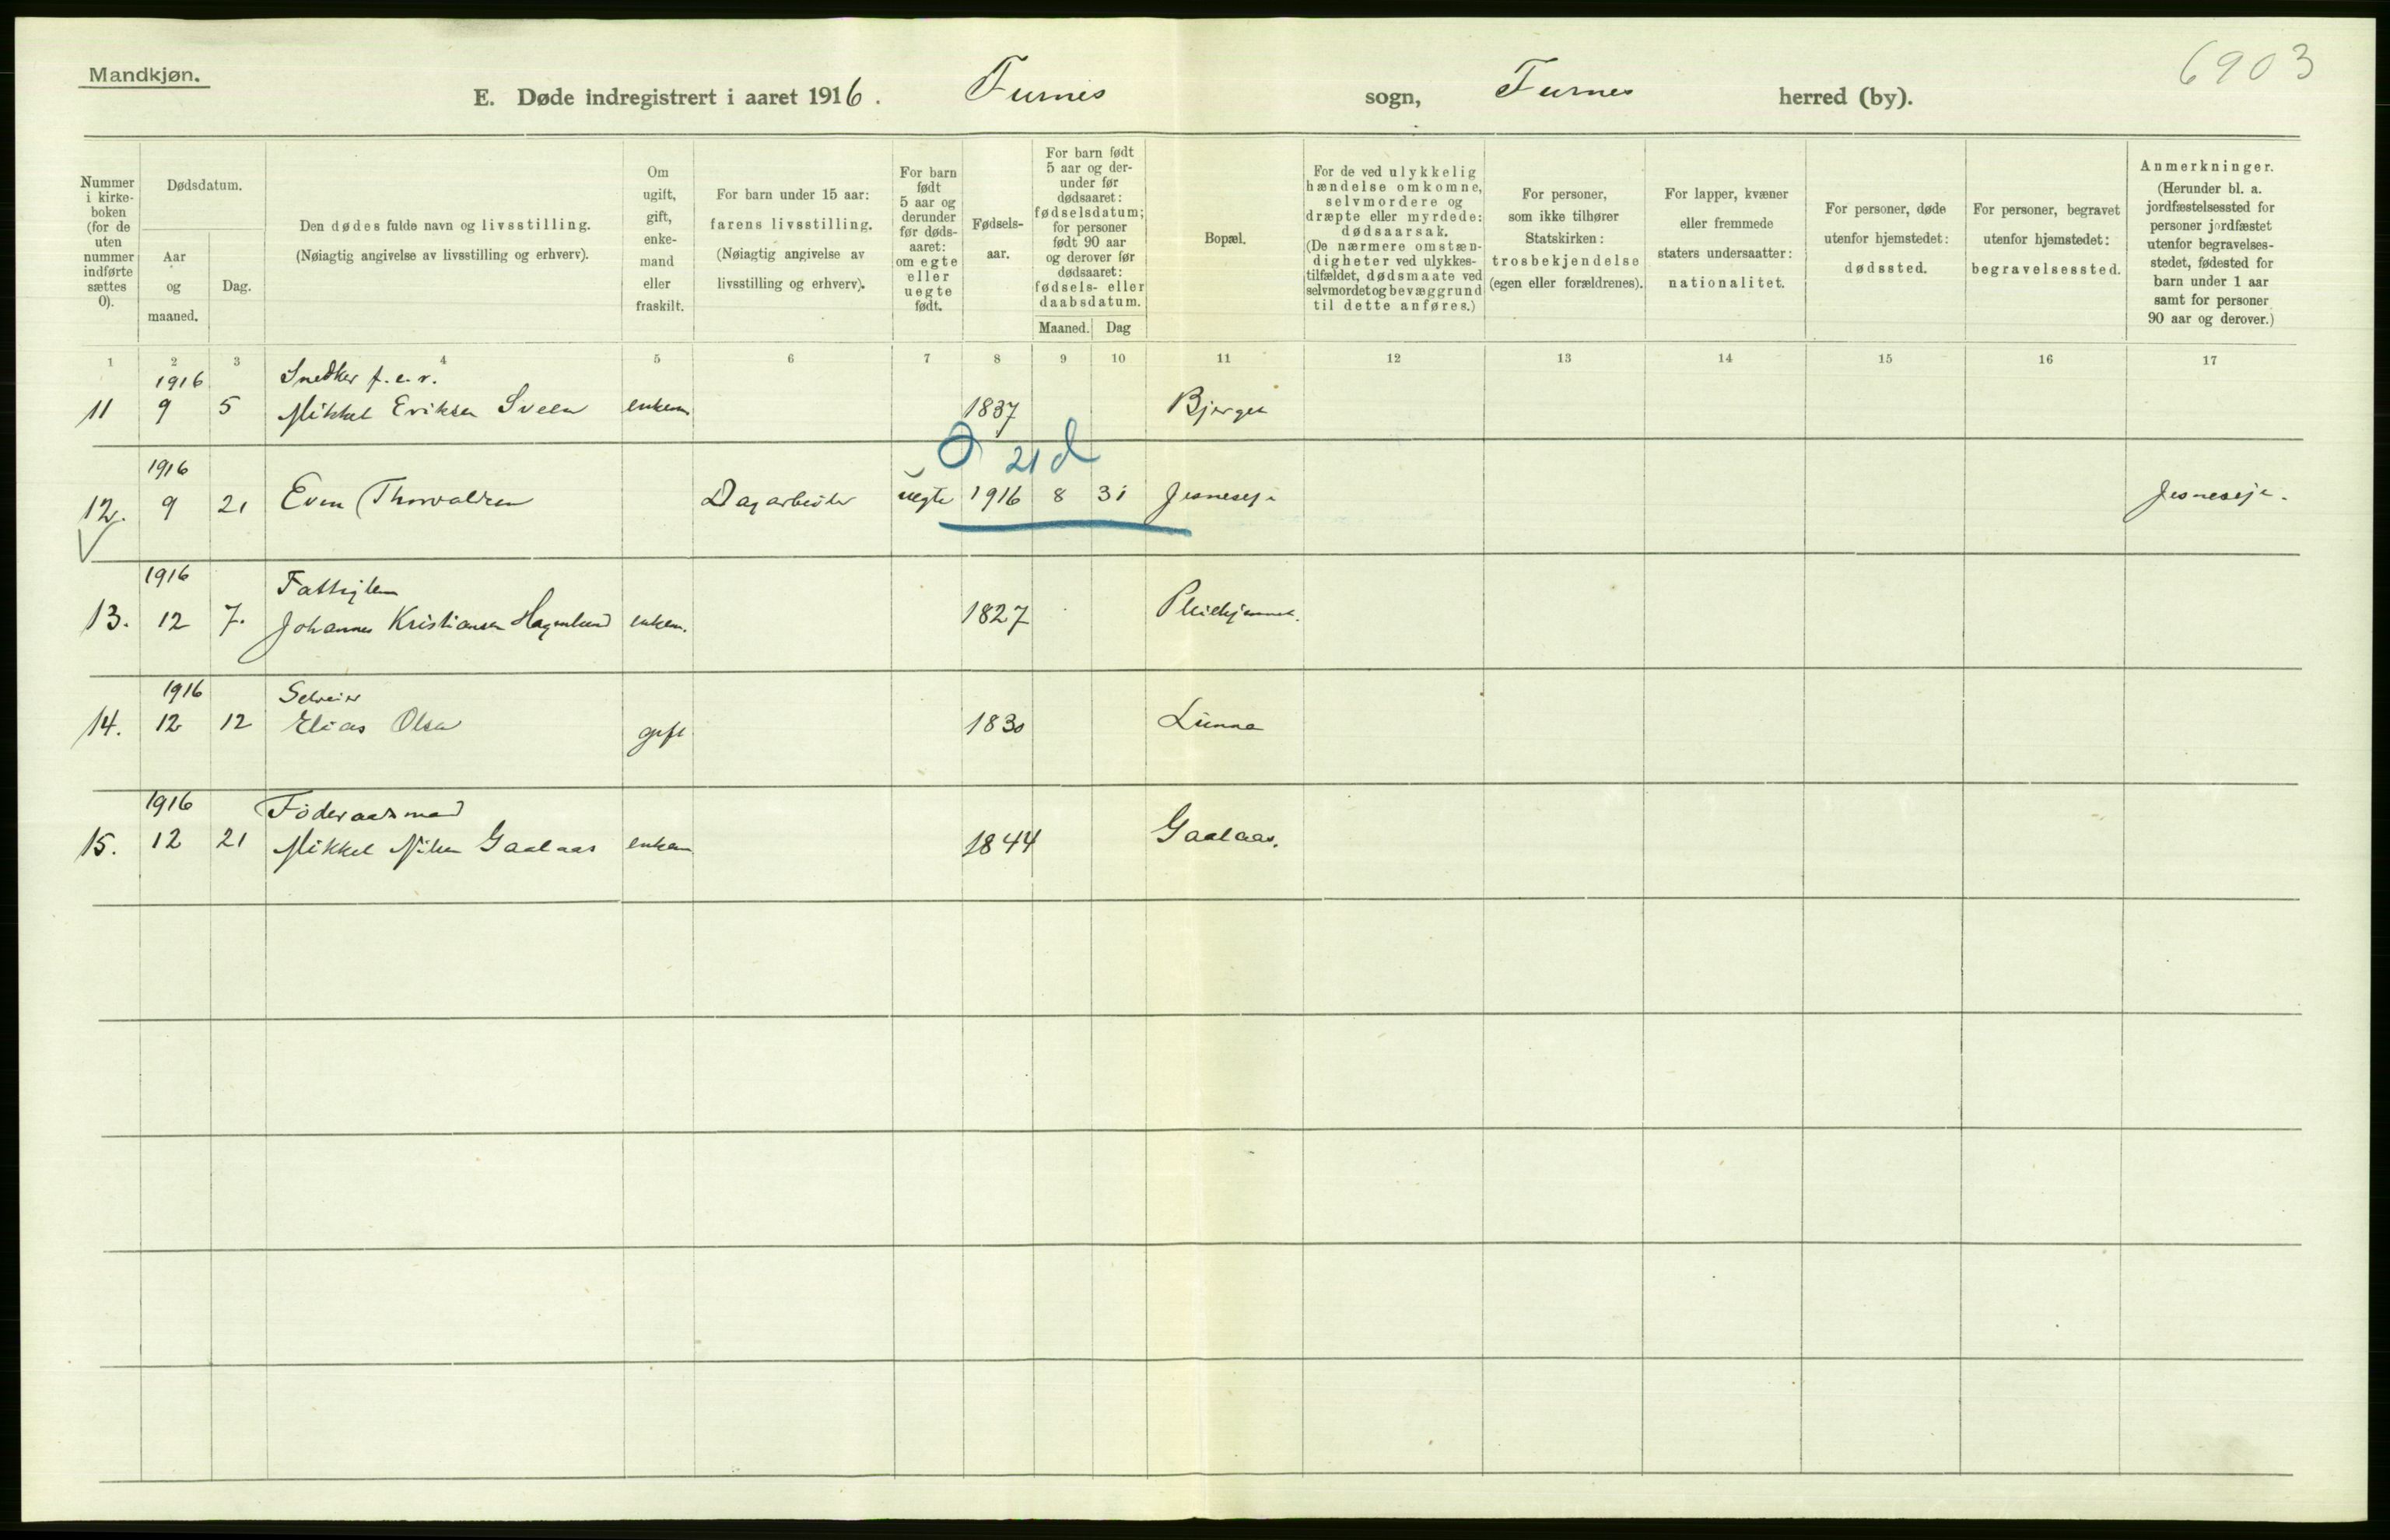 Mandkjøn.
6903
E. Døde indregistrert i aaret 1916. Furnes sogn, Furnes herred (by).
Nummer i kirke-boken (for de uten nummer indførte sættes 0).
Dødsdatum.
Aar og maaned.
Dag.
Den dødes fulde navn og livsstilling.
(Nøiagtig angivelse av livsstilling og erhverv).
Om ugift, gift, enke-mand eller fraskilt.
For barn under 15 aar:
farens livsstilling.
(Nøiagtig angivelse av livsstilling og erhverv).
For barn født 5 aar og derunder før døds-aaret: om egte eller uegte født.
Fødsels-aar.
For barn født 5 aar og der-under før dødsaaret: fødselsdatum; for personer født 90 aar og derover før dødsaaret: fødsels- eller daabsdatum.
Maaned. Dag
Bopæl.
For de ved ulykkelig hændelse omkomne, selvmordere og dræpte eller myrdede: dødsaarsak.
(De nærmere omstæn-digheter ved ulykkes-tilfældet, dødsmaate ved selvmordet og bevæggrund til dette anføres.)
For personer, som ikke tilhører Statskirken: trosbekjendelse (egen eller forældrenes).
For lapper, kvæner eller fremmede staters undersaatter: nationalitet.
For personer, døde utenfor hjemstedet: dødssted.
For personer, begravet utenfor hjemstedet: begravelsessted.
Anmerkninger.
(Herunder bl. a. jordfæstelsessted for personer jordfæstet utenfor begravelses-stedet, fødested for barn under 1 aar samt for personer 90 aar og derover.)
1 2 3 4 5 6 7 8 9 10 11 12 13 14 15 16 17
1916 Snedker f.e.r.
11 9 5 Mikkel Eriksen Sveen enkem 1837 Bjerget
0 21 d
1916
12. 9 21 Even Thorvaldsen Dagarbeider uegte 1916 8 31 Jesneseje Jesneseje.
1916 Fattiglem
13. 12 7. Johannes Kristiansen Hagenlund enkem. 1827 Pleiehjemmet.
1916 Selveier
14. 12 12 Elias Olsen gift 1830 Lunna
1916 Föderaadsmand
15. 12 21 Mikkel Nilsen Gaalaas enkem 1844 Gaalaas.